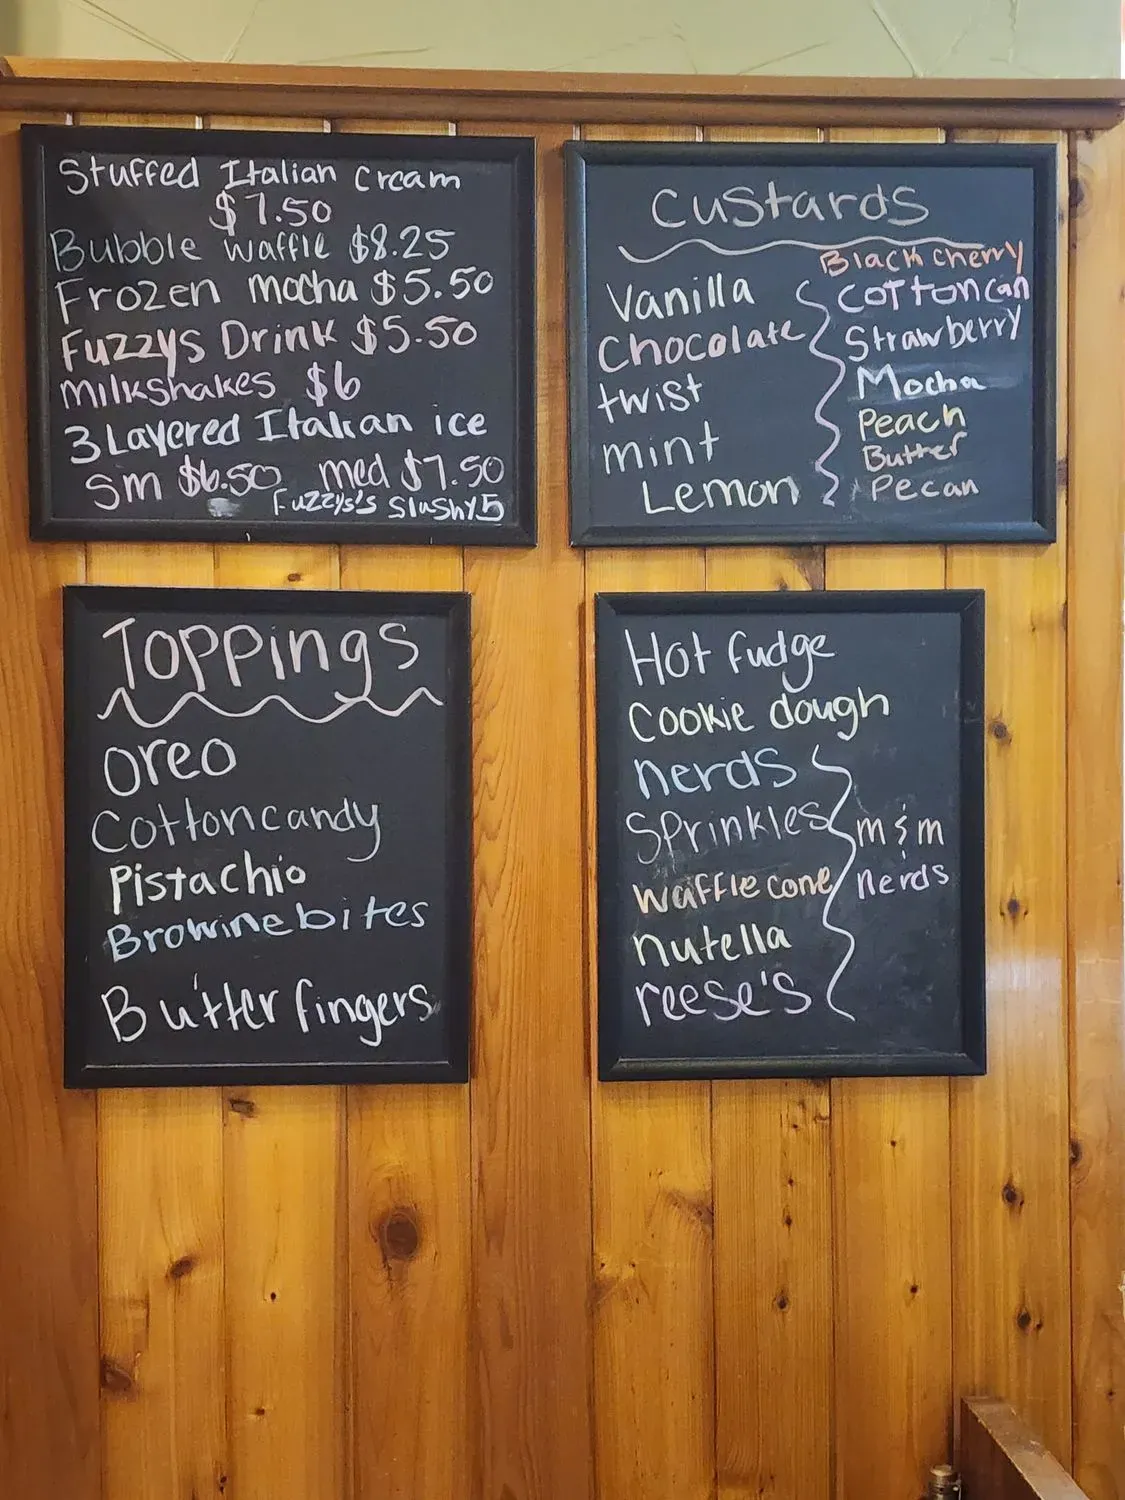 Stuffed Italian cream
$7.50
Bubble waffle $8.25
Frozen mocha $5.50
Fuzzys Drink $5.50
milkshakes $6
3 Layered Italian ice
Sm $6.50 med $7.50
Fuzzys's Slushy 5
Custards
Vanilla
Chocolate
twist
mint
Lemon
Black cherry
cotton can
Strawberry
Mocha
Peach
Butter
Pecan
Toppings
oreo
Cotton candy
Pistachio
Browine bites
Butter fingers
Hot fudge
Cookie dough
nerds
Sprinkles
waffle cone
nutella
reese's
m & m
nerds